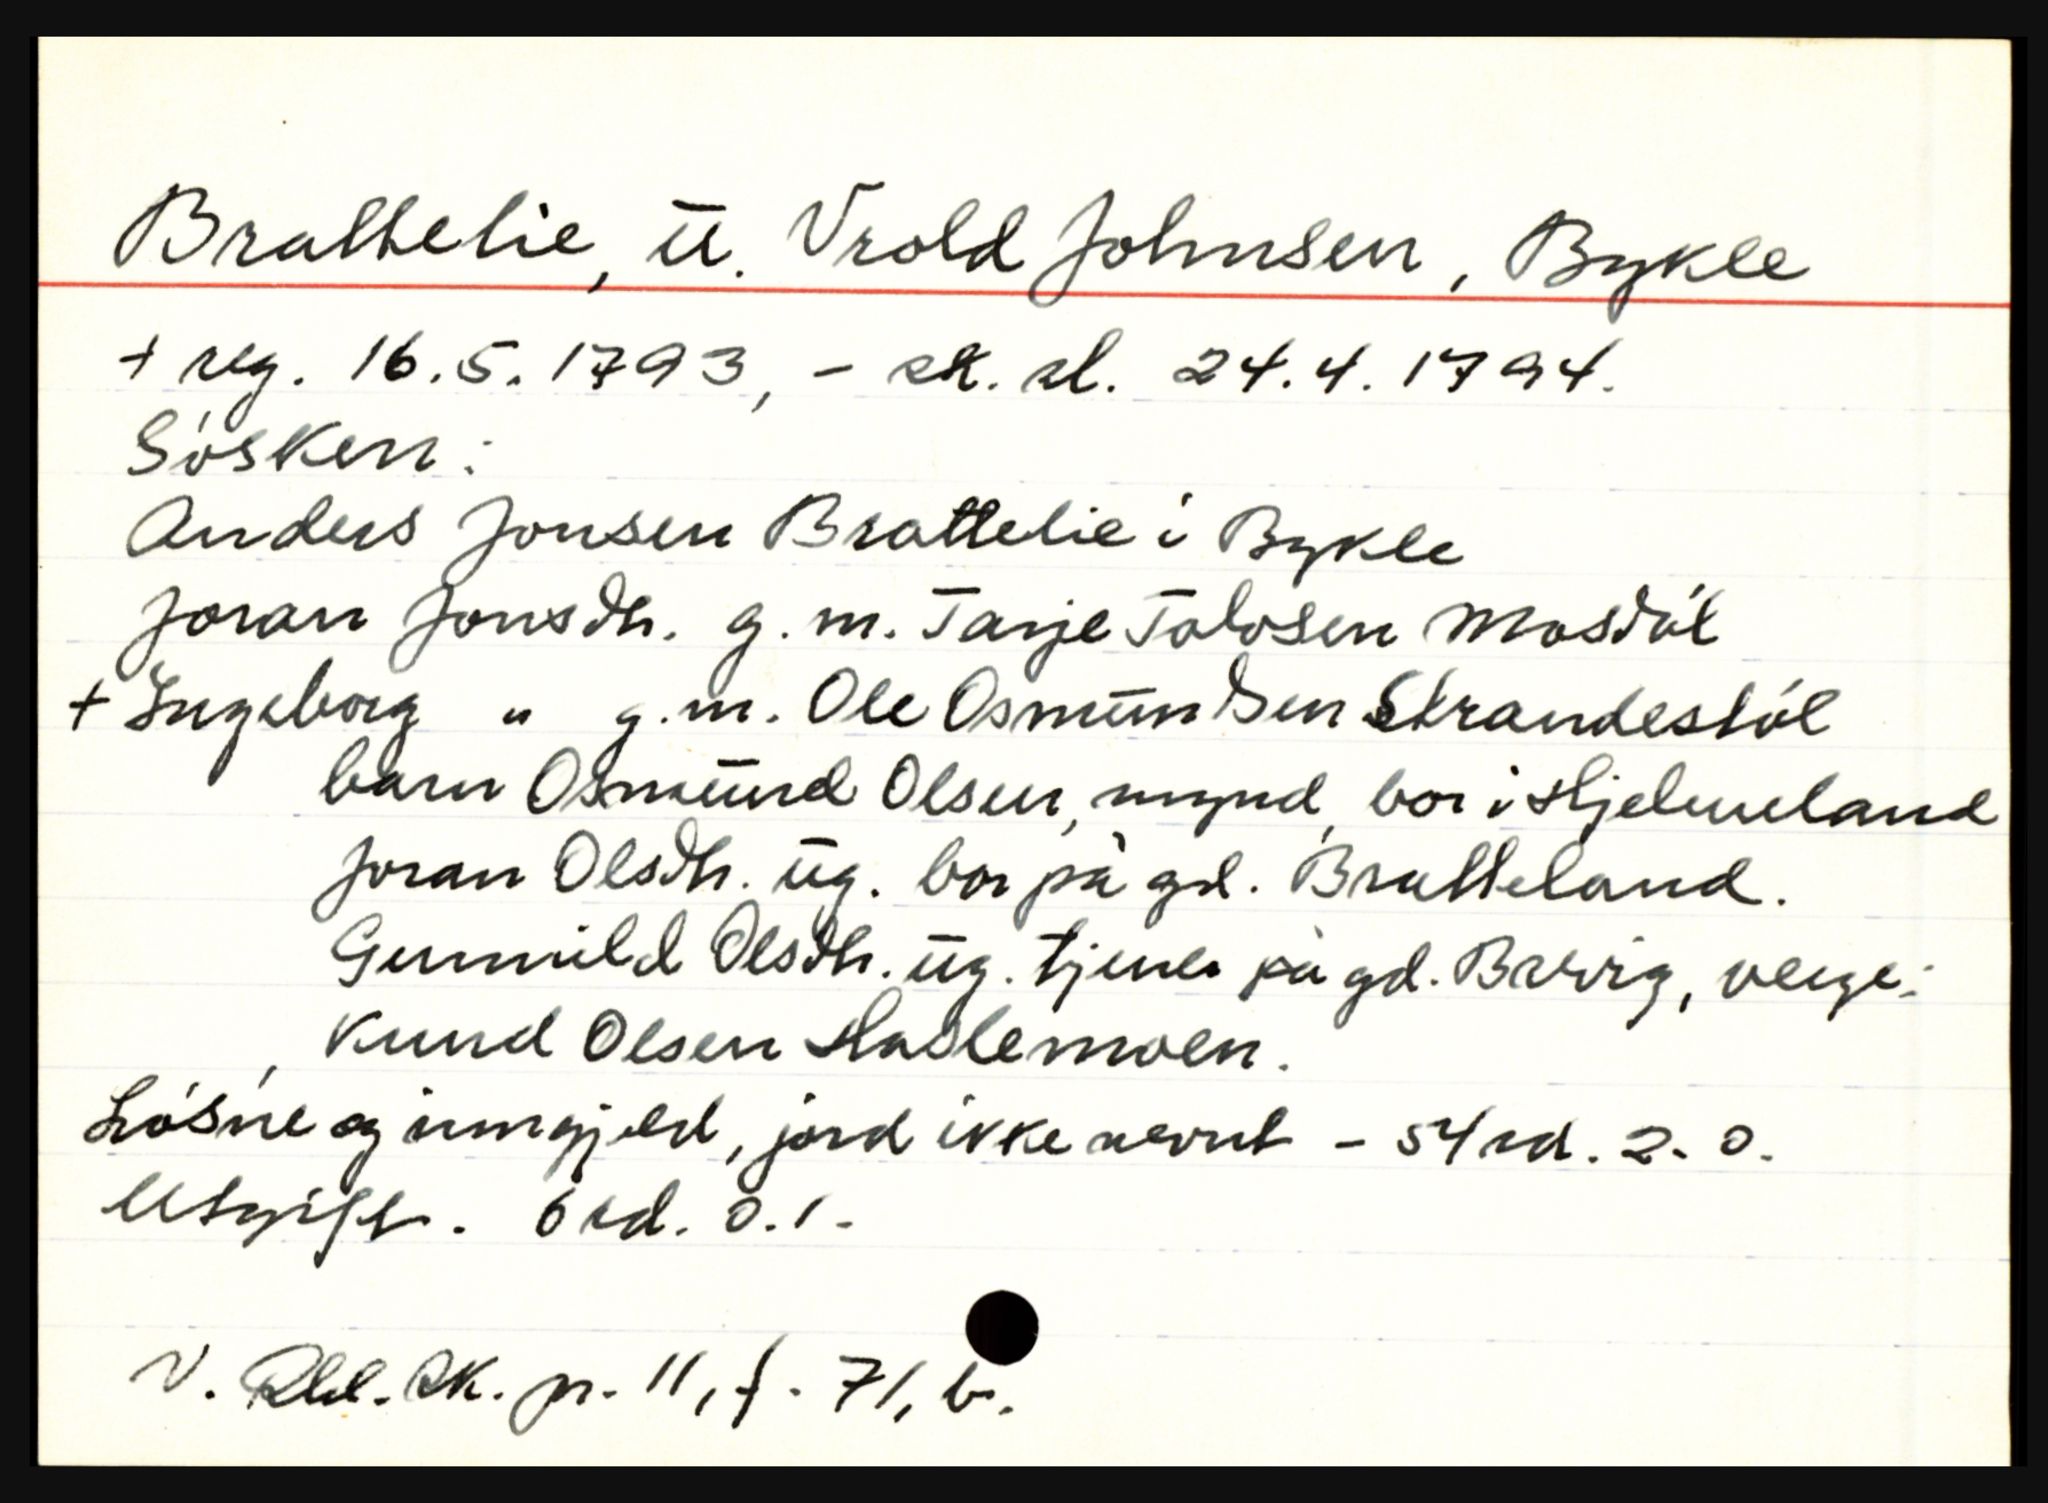 Brattelie, u. Vrold Johnsen, Bykle
+ reg. 16.5.1793, - sk. sl. 24.4.1794.
Søsken:
Anders Jonsen Brattelie i Bykle
Joran Jonsdtr. g. m. Tarje Tolvsen Mosdøl
+ Ingeborg " g. m. Ole Osmundsen Strandestøl
barn Osmund Olsen, mynd, bor i Hjelmeland
Joran Olsdtr. ug. bor på gd. Bratteland.
Gunnild Olsdtr. ug. tjener på gd. Brevig, verge:
Knud Olsen Haslemoen.
Løsøre og inngjeld, jord ikke nevnt - 54 rd. 2. 0.
Utgift. 6 rd. 0.1.
V. Rbl. sk. pr. 11, f. 71, b.